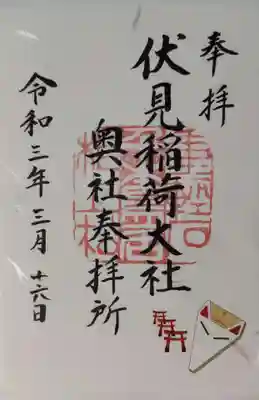 奉拝
伏見稲荷大社
奥社奉拝所
令和三年三月十六日